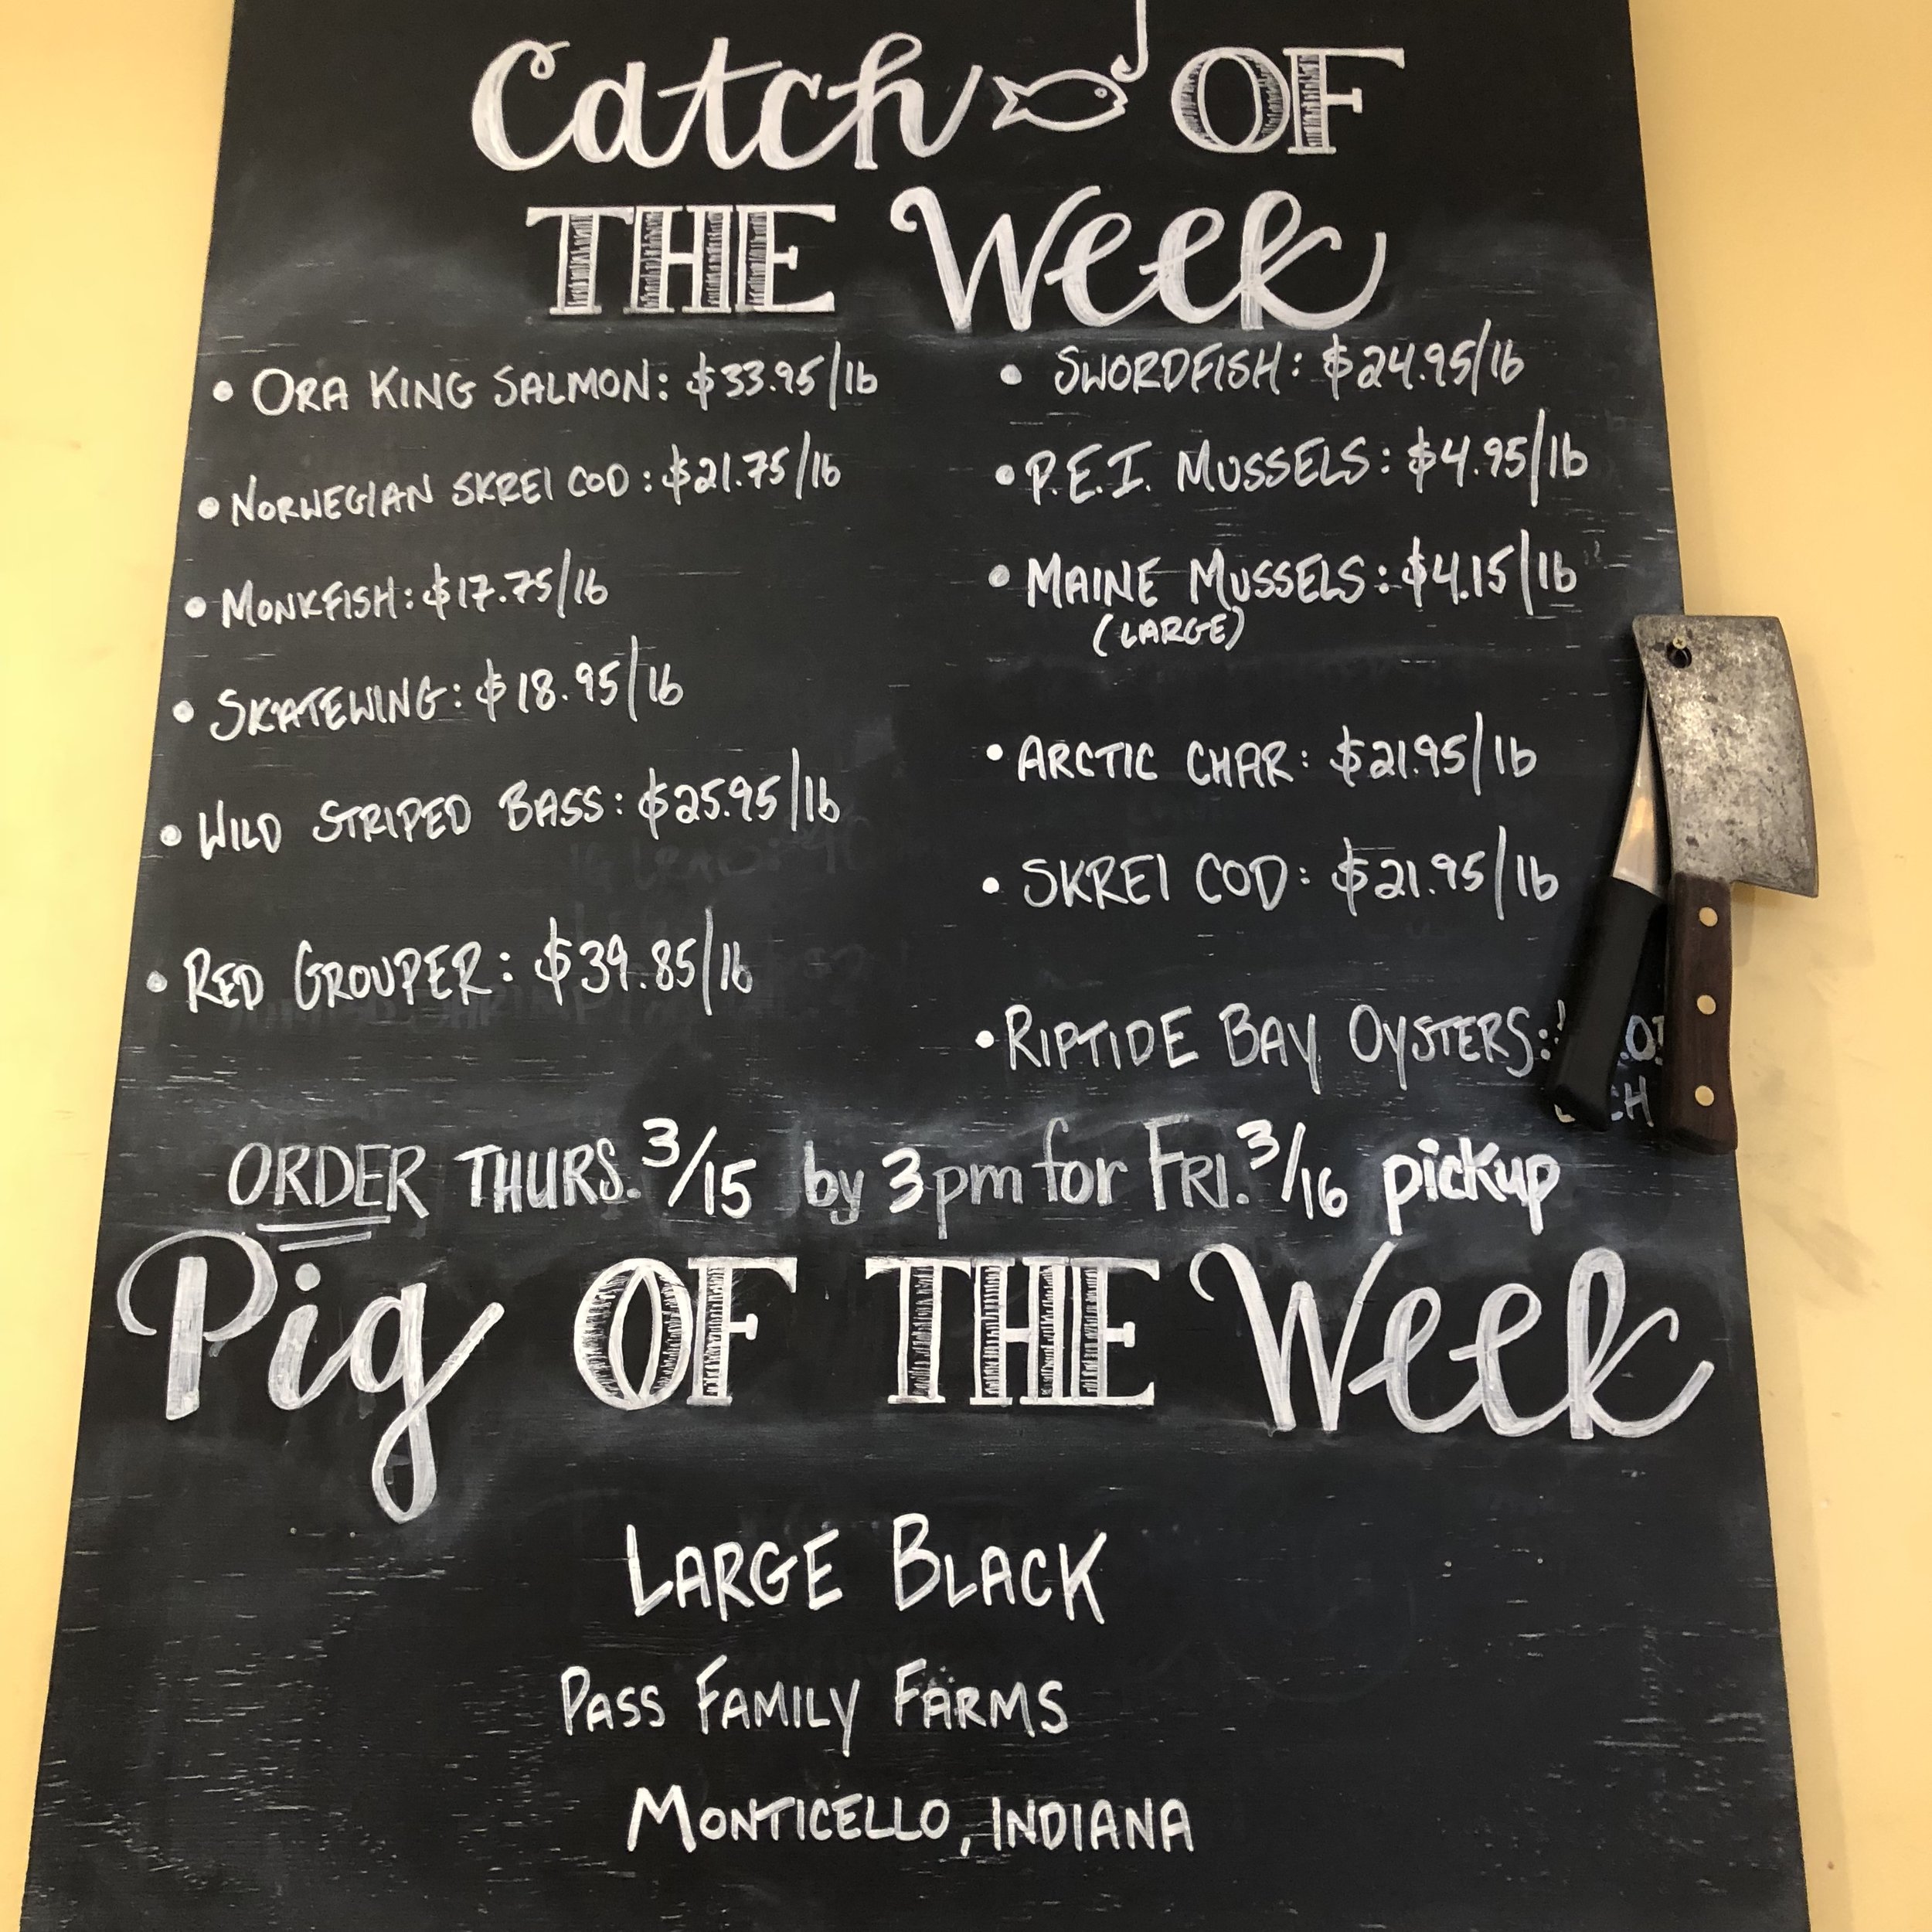 Catch OF
THE Week
• ORA KING SALMON: $33.95/lb
• NORWEGIAN SKREI COD: $21.75/lb
• MONKFISH: $17.75/lb
• SKATEWING: $18.95/lb
• WILD STRIPED BASS: $25.95/lb
• RED GROUPER: $39.85/lb
• SWORDFISH: $24.95/lb
• P.E.I. MUSSELS: $4.95/lb
• MAINE MUSSELS: $4.15/lb
(LARGE)
• ARCTIC CHAR: $21.95/lb
• SKREI COD: $21.95/lb
• RIPTIDE BAY OYSTERS:
ORDER THURS. 3/15 by 3pm for FRI. 3/16 pickup
Pig OF THE Week
LARGE BLACK
PASS FAMILY FARMS
MONTICELLO, INDIANA